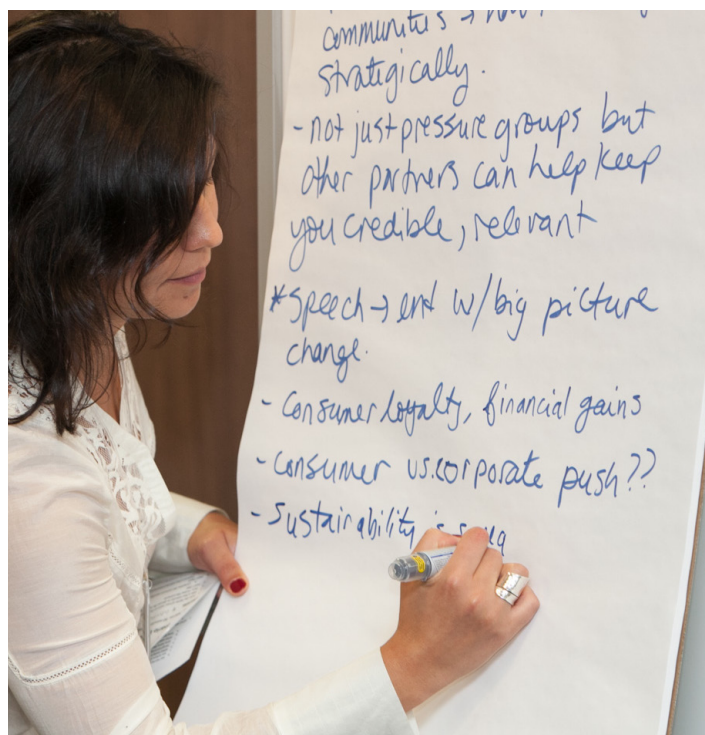 communities →
strategically.
- not just pressure groups but
other partners can help keep
you credible, relevant
* Speech → end w/big picture
change.
- Consumer loyalty, financial gains
- Consumer vs. corporate push??
- Sustainability is